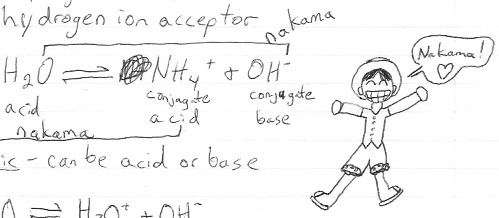 hydrogen ion acceptor
nakama
H₂O ⇌ NH₄⁺ + OH⁻
acid conjugate acid conjugate base
nakama
Nakama! ♡
ic - can be acid or base
O ⇌ H₃O⁺ + OH⁻